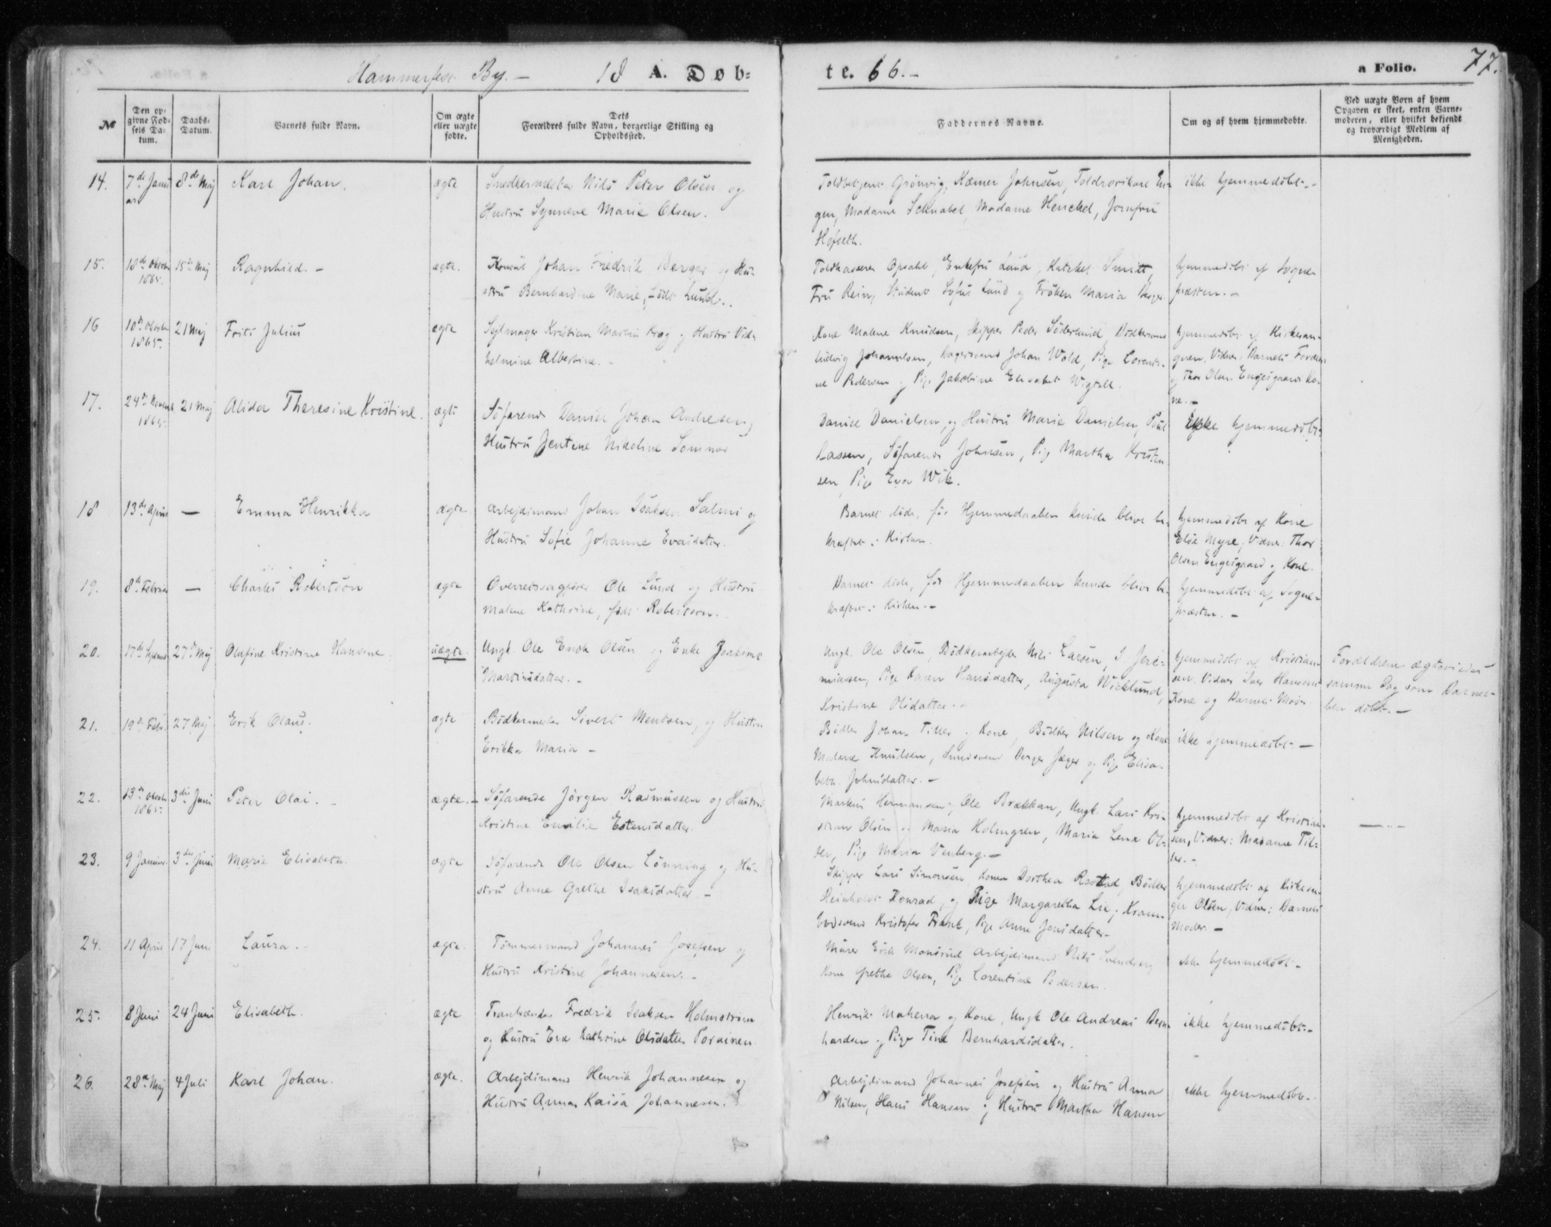 Hammerfest By. — 18 A. Døb- te. 66. — a Folio. 77.
№ | Den opgivne Fødsels Datum. | Daabs-Datum. | Barnets fulde Navn. | Om ægte eller uægte fødte. | Dets Forældres fulde Navn, borgerlige Stilling og Opholdssted. | Faddernes Navne. | Om og af hvem hjemmedøbte. | Ved uægte Børn af hvem Opgaven er skeet, enten Barnemoderen, eller hvilket bekjendt og troværdigt Medlem af Menigheden.
14. 7de Janu- 8de Maj Karl Johan. ægte Snedkermester Nils Peter Olsen og
Hustru Synneve Marie Olsen.
Grönvig, Kæmner Johnsen,
Madame Schnabel, Madame Henckel, Jomfru
Høfseth.
ikke hjemmedöbt.
15. 1865. 15de Maj Ragnhild. ægte. Konsul Johan Fredrik Berger og Hu-
stru Bernhardine Marie, född Lund.
Toldkasserer Opdahl, Enkefru Lund,
Fru Rein, Student Sofus Lund og Fröken Maria Berger
hjemmedöbt af Sogne-
præsten.
16 10de Oktober 1865. 21 Maj Frits Julius ægte Sejlmager Kristian Martin Krog og Hustru Vil-
helmine Albertine.
Kone Malene Knudsen, Skipper Peder Söderlund,
Ludvig Johannesen, Johan Wold, Pige Lorenti-
ne Pedersen og Pige Jakobine Elisabet
hjemmedöbt af Kirkesan-
geren, Vidner: Barnets Forældre
og Thor Olsen Engesgaards Ko-
ne.
17. 24de 1865 21 Maj Alida Theresine Kristine. ægte Söfarende Daniel Johan Andresen og
Hustru Jentine Nikoline Sommer
Daniel Danielsen og Hustru Marie Danielsen,
Lassen, Söfarende Johnsen, Pige Martha Kristen-
sen, Pige Eva Wik.
Ikke hjemmedöbt.
18 13de April — Emma Henrikka ægte Arbejdsmand Johan Isaksen Salmi og
Hustru Sofie Johanne Evasdatter.
Barnet döde, för Hjemmedaaben kunde blive be-
kræftet i Kirken.
hjemmedöbt af Kone
Elise Myre, Vidner: Thor
Olsen Engesgaard og Kone.
19. 8de Februar — Charles Robertson ægte Overretssagförer Ole Lund og Hustru
Malene Kathrine, född Robertson.
Barnet döde, för Hjemmedaaben kunde blive be-
kræftet i Kirken.
hjemmedöbt af Sogne-
præsten.
20. 27de Maj Olufine Kristine Hansine uægte. Ungk. Ole Erik Olsen og Enke Josefine
Martinsdatter.
Ungk. Ole Olsen, Nils Larsen, J. Jere-
miassen, Pige Karen Hansdatter, Augusta Wicklund,
Kristine Olsdatter.
hjemmedöbt af Kristian-
sen, Vidner Iver Hansens
Kone og Barnets Moder
Forældrene ægteviede
samme Dag som Barnet
blev döbt.
21. 19de Febr. 27 Maj Erik Olaus. ægte Bödkermester Sivert Mentsen og Hustru
Erikka Maria
Bödker Johan Tiller og Kone, Bödker Nilsen og Kone
Malene Knudsen, Jæger og Pige Elisa-
beth Johnsdatter.
ikke hjemmedöbt.
22. 13de Oktober 1865. 3die Juni Peter Olai. ægte. Söfarende Jörgen Rasmussen og Hustru
Kristine Emilie Estensdatter
Markus Hermansen, Ole Brækkan, Ungk. Lars Kri-
stian Olsen og Maria Holmgren, Maria Lena Ol-
sen, Pige Maria
hjemmedöbt af Kristian-
sen, Vidner: Madame Til-
ler.
23. 9 Januar 3die Juni Maria Elisabeth. ægte Söfarende Ole Olsen Lönning og Hu-
stru Anne Grethe Isaksdatter
Skipper Lars Simonsen, Konen Dorthea Rostad, Bödker
Reinholdt Konrad, og Pige Margaretha Lie,
Kristofer Frank, Pige Anne Jensdatter
hjemmedöbt af Kirkesan-
ger Olsen, Vidner: Barnets
Moder
24. 11 April 17 Juni Laura. ægte. Tömmermand Johannes Josefsen og
Hustru Kristine Johannesen.
Murer Erik Monsrud, Arbejdsmand Nils
Kone Grethe Olsen, Pige Lorentine Pedersen.
ikke hjemmedöbt.
25. 8 Juni 24 Juni Elisabeth. ægte Fredrik Isaksen Holmström
og Hustru Eva Kathrine Olsdatter Porainen
Henrik Maherra og Kone, Ungk. Ole Andreas Bern-
hardsen og Pige Tina Bernhardsdatter.
ikke hjemmedöbt.
26. 28de Maj 4 Juli Karl Johan. ægte. Arbejdsmand Henrik Johannesen og
Hustru Anna Kaisa Johannesen.
Arbejdsmand Johannes Josefsen og Hustru Anna
Nilsen, Hans Hansen og Hustru Martha Hansen
ikke hjemmedöbt.